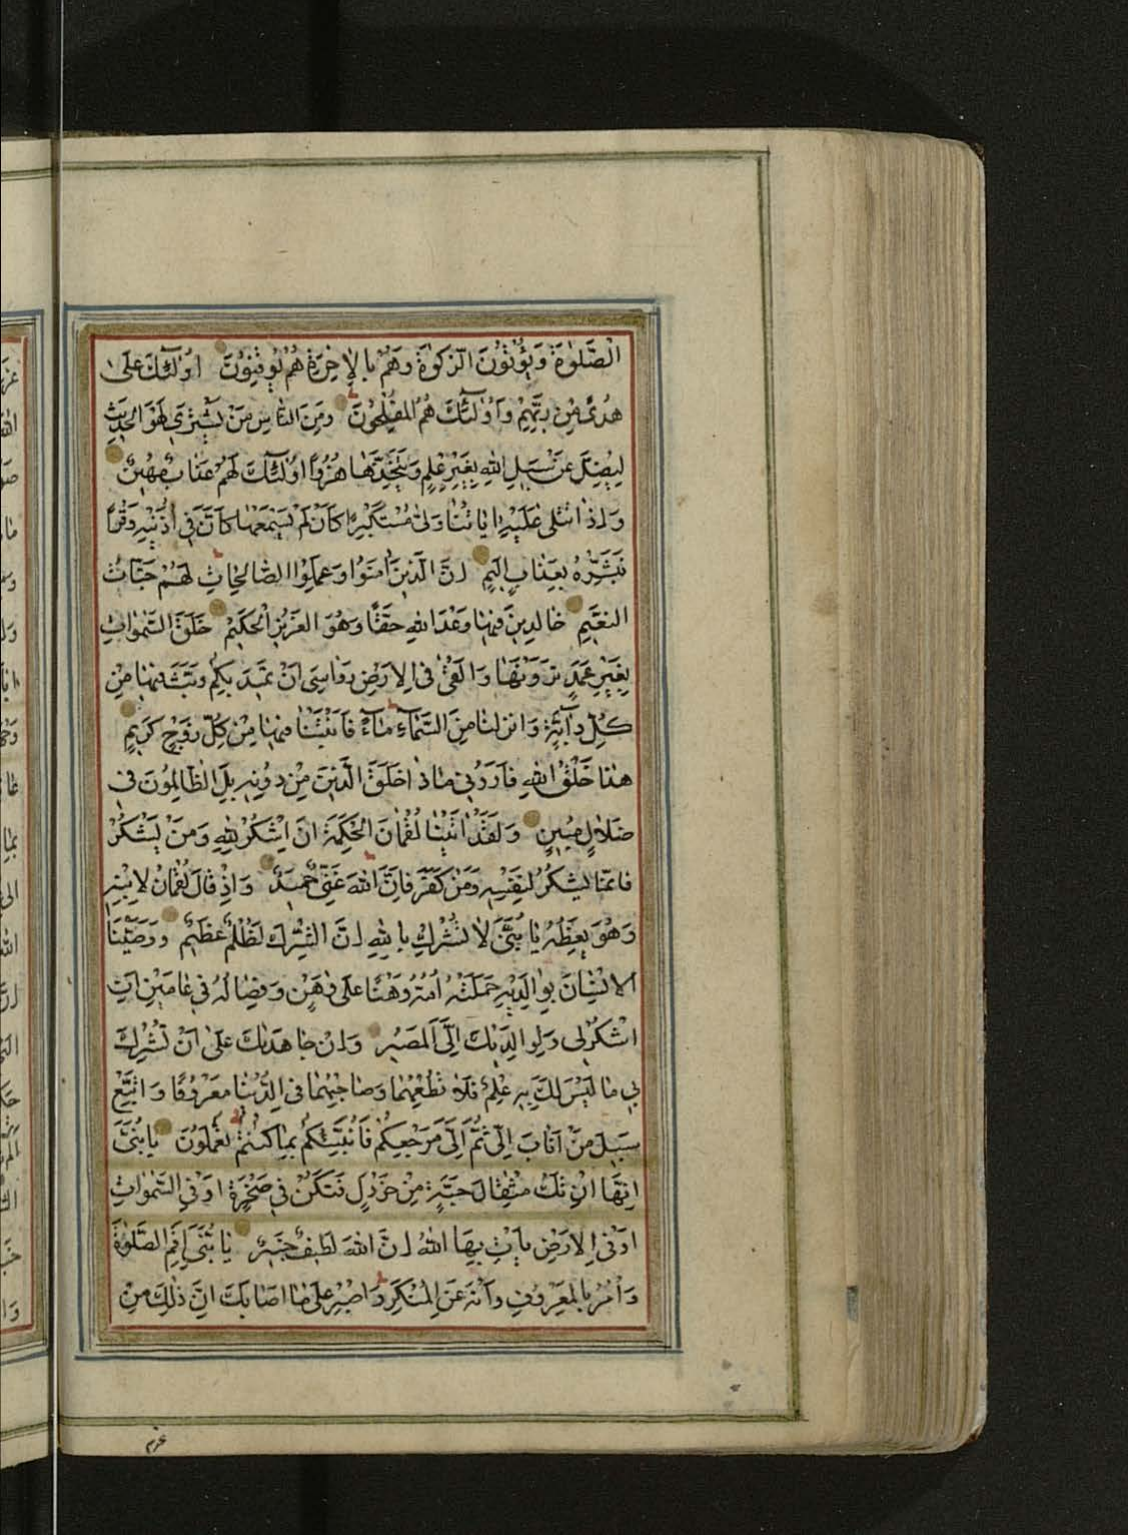 الصَّلٰوةَ وَيُؤْتُونَ الزَّكٰوةَ وَهُمْ بِالْاٰخِرَةِ هُمْ يُوقِنُونَ اُولٰٓئِكَ عَلٰى
هُدًى مِنْ رَبِّهِمْ وَاُولٰٓئِكَ هُمُ الْمُفْلِحُونَ وَمِنَ النَّاسِ مَنْ يَشْتَرِي لَهْوَ الْحَدِيثِ
لِيُضِلَّ عَنْ سَبِيلِ اللّٰهِ بِغَيْرِ عِلْمٍ وَيَتَّخِذَهَا هُزُوًا اُولٰٓئِكَ لَهُمْ عَذَابٌ مُهِينٌ
وَاِذَا تُتْلٰى عَلَيْهِ اٰيَاتُنَا وَلّٰى مُسْتَكْبِرًا كَاَنْ لَمْ يَسْمَعْهَا كَاَنَّ فِي اُذُنَيْهِ وَقْرًا
فَبَشِّرْهُ بِعَذَابٍ اَلِيمٍ اِنَّ الَّذِينَ اٰمَنُوا وَعَمِلُوا الصَّالِحَاتِ لَهُمْ جَنَّاتُ
النَّعِيمِ خَالِدِينَ فِيهَا وَعْدَ اللّٰهِ حَقًّا وَهُوَ الْعَزِيزُ الْحَكِيمُ خَلَقَ السَّمٰوَاتِ
بِغَيْرِ عَمَدٍ تَرَوْنَهَا وَاَلْقٰى فِي الْاَرْضِ رَوَاسِيَ اَنْ تَمِيدَ بِكُمْ وَبَثَّ فِيهَا مِنْ
كُلِّ دَآبَّةٍ وَاَنْزَلْنَا مِنَ السَّمَآءِ مَآءً فَاَنْبَتْنَا فِيهَا مِنْ كُلِّ زَوْجٍ كَرِيمٍ
هٰذَا خَلْقُ اللّٰهِ فَاَرُونِي مَاذَا خَلَقَ الَّذِينَ مِنْ دُونِهِ بَلِ الظَّالِمُونَ فِي
ضَلَالٍ مُبِينٍ وَلَقَدْ اٰتَيْنَا لُقْمٰنَ الْحِكْمَةَ اَنِ اشْكُرْ لِلّٰهِ وَمَنْ يَشْكُرْ
فَاِنَّمَا يَشْكُرُ لِنَفْسِهِ وَمَنْ كَفَرَ فَاِنَّ اللّٰهَ غَنِيٌّ حَمِيدٌ وَاِذْ قَالَ لُقْمٰنُ لِابْنِهِ
وَهُوَ يَعِظُهُ يَا بُنَيَّ لَا تُشْرِكْ بِاللّٰهِ اِنَّ الشِّرْكَ لَظُلْمٌ عَظِيمٌ وَوَصَّيْنَا
الْاِنْسَانَ بِوَالِدَيْهِ حَمَلَتْهُ اُمُّهُ وَهْنًا عَلٰى وَهْنٍ وَفِصَالُهُ فِي عَامَيْنِ اَنِ
اشْكُرْ لِي وَلِوَالِدَيْكَ اِلَيَّ الْمَصِيرُ وَاِنْ جَاهَدَاكَ عَلٰى اَنْ تُشْرِكَ
بِي مَا لَيْسَ لَكَ بِهِ عِلْمٌ فَلَا تُطِعْهُمَا وَصَاحِبْهُمَا فِي الدُّنْيَا مَعْرُوفًا وَاتَّبِعْ
سَبِيلَ مَنْ اَنَابَ اِلَيَّ ثُمَّ اِلَيَّ مَرْجِعُكُمْ فَاُنَبِّئُكُمْ بِمَا كُنْتُمْ تَعْمَلُونَ يَا بُنَيَّ
اِنَّهَا اِنْ تَكُ مِثْقَالَ حَبَّةٍ مِنْ خَرْدَلٍ فَتَكُنْ فِي صَخْرَةٍ اَوْ فِي السَّمٰوَاتِ
اَوْ فِي الْاَرْضِ يَاْتِ بِهَا اللّٰهُ اِنَّ اللّٰهَ لَطِيفٌ خَبِيرٌ يَا بُنَيَّ اَقِمِ الصَّلٰوةَ
وَاْمُرْ بِالْمَعْرُوفِ وَانْهَ عَنِ الْمُنْكَرِ وَاصْبِرْ عَلٰى مَا اَصَابَكَ اِنَّ ذٰلِكَ مِنْ
عزم